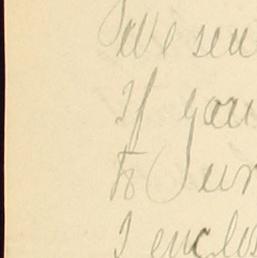 We sen
If you
to Sur
I enclo